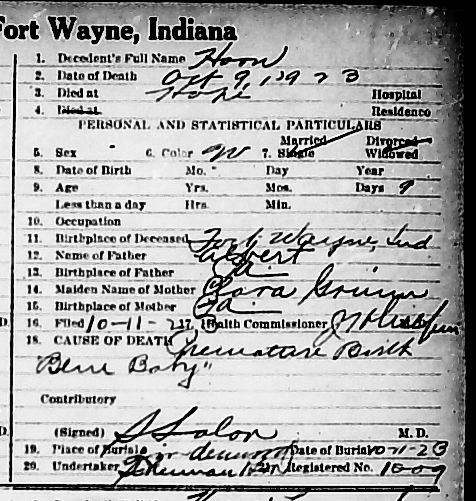 Fort Wayne, Indiana
1. Decedent's Full Name Horn
2. Date of Death Oct 9, 1923
3. Died at Hope Hospital
4. Died at Residence
PERSONAL AND STATISTICAL PARTICULARS
Married Divorced
5. Sex 6. Color W 7. Single Widowed
8. Date of Birth Mo. Day Year
9. Age Yrs. Mos. Days 9
Less than a day Hrs. Min.
10. Occupation
11. Birthplace of Deceased Fort Wayne, Ind
12. Name of Father Albert
13. Birthplace of Father
14. Maiden Name of Mother
15. Birthplace of Mother
16. Filed 10-11-2 17. Health Commissioner
18. CAUSE OF DEATH Premature Birth
"Blue Baby"
Contributory
(Signed) M. D.
19. Place of Burial Date of Burial 10-11-23
20. Undertaker Registered No. 1009